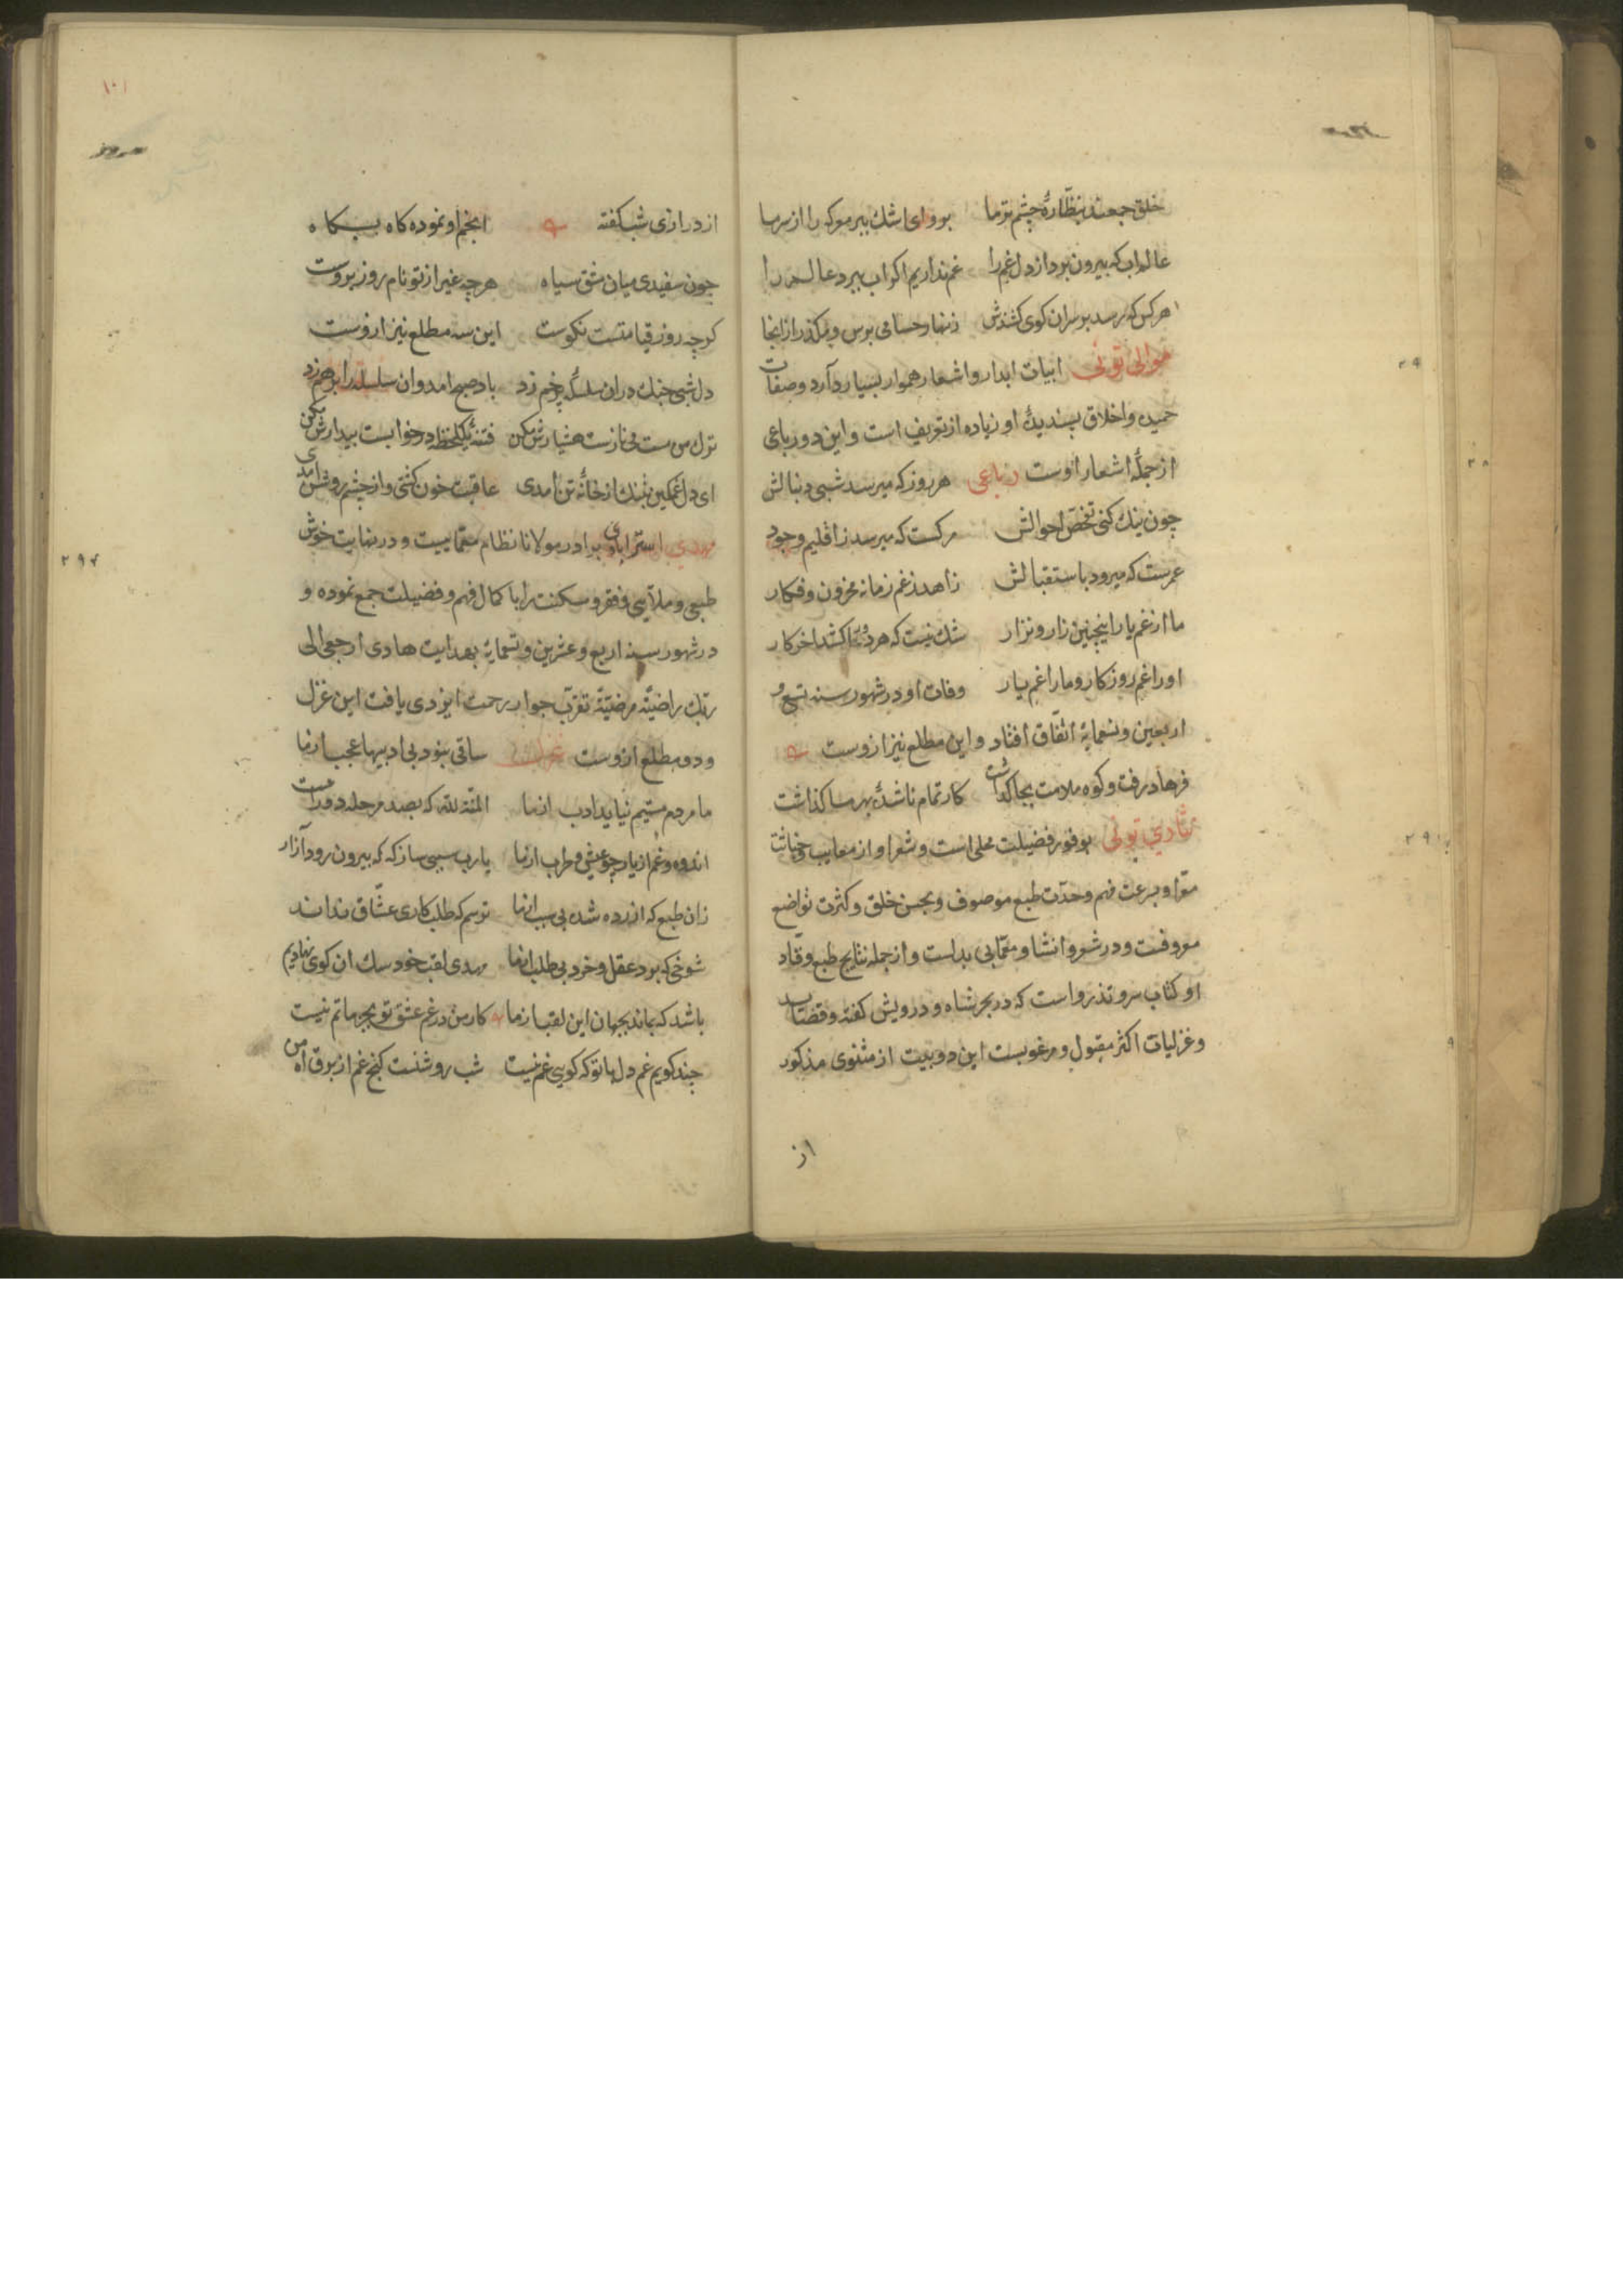 خلق جمعند بنظارهٔ چشم تر ما بو وای اشك ببر مو که را از سر ما
عالم اب که بیرون برد از دل غم را غم نداریم اکر اب ببرد عالم را
هر کس که رسد بر سر ان کوی کشندش زنهار حسامی برس و مکذر از انجا
موالی تونی ابیات ابدار و اشعار هموار بسیار دارد و صفات
حمیده و اخلاق پسندیدهٔ او زیاده از تعریف است و این دو رباعی
از جملهٔ اشعار اوست رباعی هر روز که میرسد شبی دنبالش
چون نیك کنی تفحص احوالش مرکست که میرسد ز اقلیم وجود
عمرست که میرود باستقبالش زاهد ز غم زمانه محزون و فکار
ما از غم یار اینچنین زار و نزار شك نیست که هر دو را کشد اخر کار
او را غم روزکار و ما را غم یار وفات او در شهور سنه تسع و
اربعین و تسعمایة اتفاق افتاد و این مطلع نیز ازوست
فرهاد رفت و کوه ملامت بجا کذاشت کار تمام ناشده بهر ما کذاشت
نثاری تونی بوفور فضیلت محلی است و شعر او از معایب و خباثت
معرا و بسرعت فهم و حدت طبع موصوف و بحسن خلق و کثرت تواضع
معروفست و در شعر و انشا و معما بی بدلست و از جمله نتایج طبع وقاد
او کتاب سرو تذرو است که در بحر شاه و درویش کفته و قصاید
و غزلیات اکثر مقبول و مرغوبست این دو بیت از مثنوی مذکور
از
۱۰۱
از درازی شب کفته انجم او نموده کاه بیکاه
چون سفیدی میان مشق سیاه هر چه غیر از تو نام روز بروست
کرچه روز قیامتست نکوست این سه مطلع نیز ازوست
دل شبی چنك در ان سلسلهٔ پر خم زد باد صبح امد و ان سلسله را بر هم زد
ترك من مست می نازست هشیارش مکن فتنهٔ یکلحظه در خوابست بیدارش مکن
ای دل غمکین بتنك از خانهٔ تن امدی عاقبت خون کشتی و از چشم روشن امدی
مهدی استرابادی برادر مولانا نظام معماییست و در نهایت خوش
طبعی و ملایمی و فقر و مسکنت را با کمال فهم و فضیلت جمع نموده و
در شهور سنه اربع و عشرین و تسمایة بهدایت هادی ارجعی الی
ربك راضیة مرضیة تقرب جوار رحمت ایزدی یافت این غزل
و دو مطلع ازوست غزل ساقی بنود بی ادبیها عجب از ما
ما مردم مستیم نیاید ادب از ما المنة لله که بصد مرحله دورست
اندوه و غم از یار چو عیش و طرب از ما یا رب سببی ساز که بیرون رود آزار
زان طبع که ازرده شده بی سبب از ما ترسم که طلبکاری عشاق نداند
شوخی که برد عقل و خرد بی طلب از ما مهدی لقب خود سك ان کوی نهادیم
باشد که بماند بجهان این لقب از ما کار من در غم عشق تو بجز ماتم نیست
چند کویم غم دل با تو که کویی غم نیست شب روشنست کنج غم از برق اه من
۲۹۷